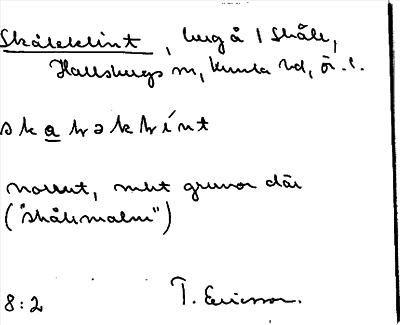 Skåleklint, berg å 1 Skåle,
Hallsbergs sn, Kumla hd, Ör. l.
skaꞎəkꞎint
norrut, mkt gruvor där
("skålmalm")
8:2 T. Ericsson.